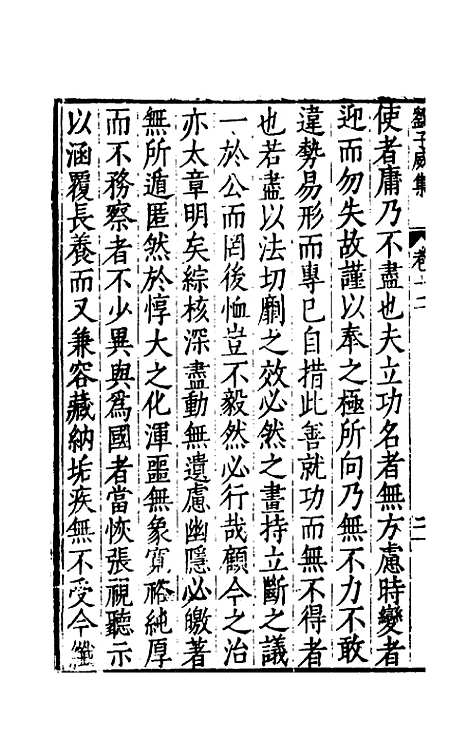 劉子威集 卷十二 二
使者庸乃不盡也夫立功名者無方慮時變者
迎而勿失故謹以奉之極所向乃無不力不敢
違勢易形而專已自措此善就功而無不得者
也若盡以法切劘之效必然之畫持立斷之議
一於公而罔後恤豈不毅然必行哉顧今之治
亦太章明矣綜核深盡動無遺慮幽隱必皦著
無所遁匿然於惇大之化渾噩無象寬裕純厚
而不務察者不少異與爲國者當恢張視聽示
以涵覆長養而又兼容藏納垢疾無不受今纖